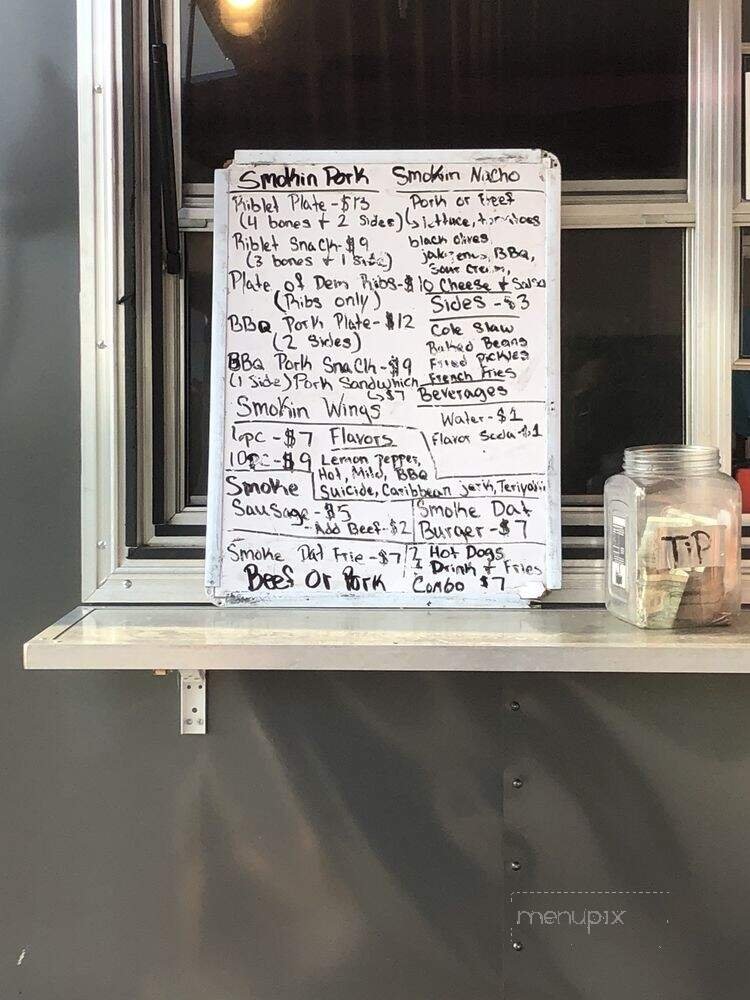 Smokin Pork
Riblet Plate - $13
(4 bones + 2 Sides)
Riblet Snack - $9
(3 bones + 1 Side)
Plate of Dem Ribs - $10
(Ribs only)
BBQ Pork Plate - $12
(2 Sides)
BBQ Pork Snack - $9
(1 Side) Pork Sandwhich
↳ $7
Smokin Nacho
Pork or Beef
↳ lettuce, tomatoes
black olives,
jalapenos, BBQ,
Sour Cream,
Cheese + Salsa
Sides - $3
Cole Slaw
Baked Beans
Fried Pickles
French Fries
Beverages
Water - $1
Flavor Soda - $1
Smokin Wings
6pc - $7
10pc - $9
Flavors
Lemon Pepper,
Hot, Mild, BBQ
Suicide, Caribbean Jerk, Teriyaki
Smoke
Sausage - $5
- Add Beef - $2
Smoke Dat
Burger - $7
Smoke Dat Frie - $7
Beef Or Pork
2 Hot Dogs
Drink + Fries
Combo $7
TiP
menupix